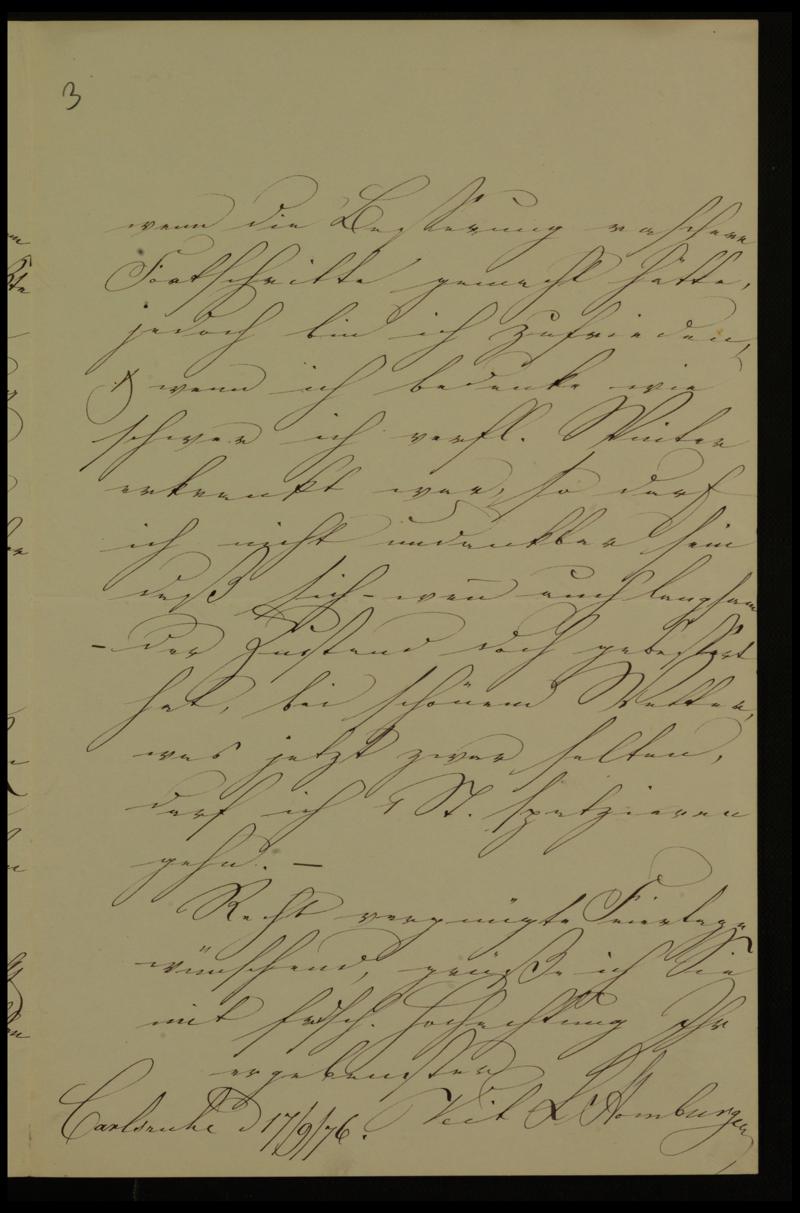 3
wenn die Besserung raschere
Fortschritte gemacht hätte,
jedoch bin ich zufrieden,
wenn ich bedenke wie
schwer ich verfl. Winter
erkrankt war, so darf
ich nicht undankbar sein
daß sich - wen̄ auch langsam
- der Zustand doch gebessert
hat, bei schönem Wetter,
was jetzt zwar selten,
darf ich 1 St. spatzieren
gehn. -
Recht vergnügte Feiertage
wünschend, grüße ich Sie
mit frdsch. Hochachtung Ihr
ergebenster
Carlsruhe d 17/9/76. Veit L Homburger